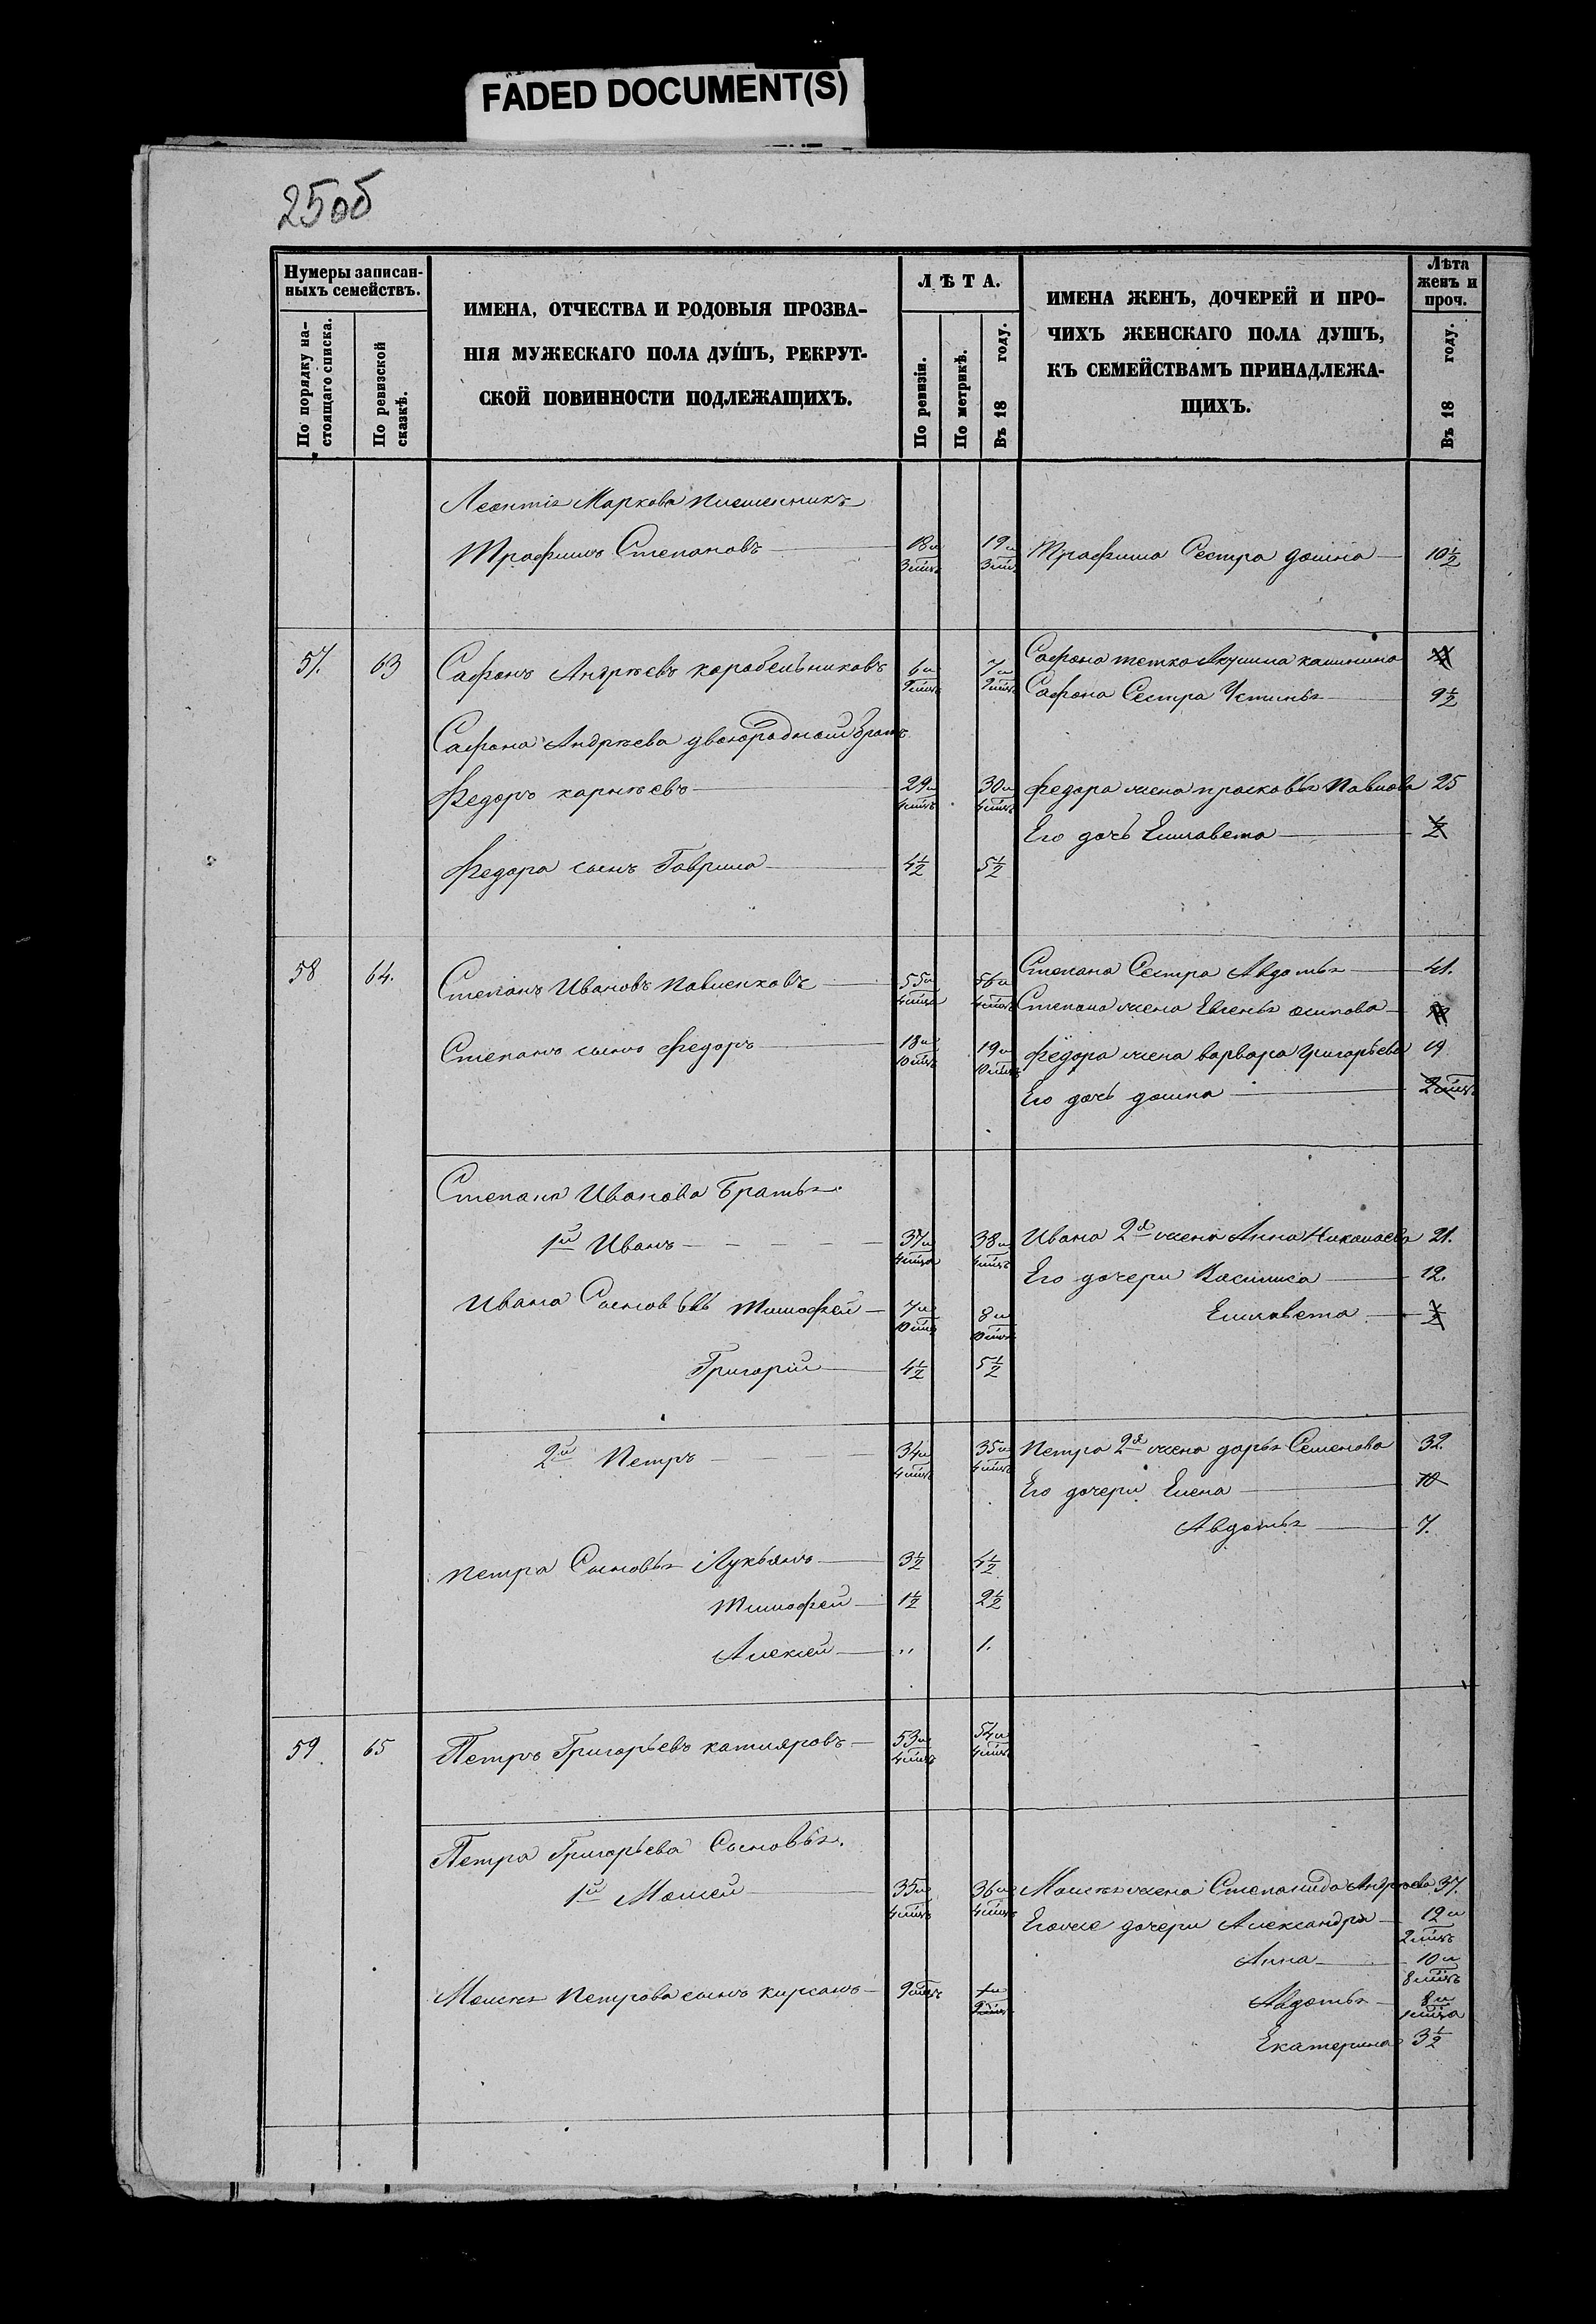 FADED DOCUMENT(S)
25об
Нумеры записан-
ныхъ семействъ.
По порядку на-
стоящаго списка.
По ревизской
сказкѣ.
ИМЕНА, ОТЧЕСТВА И РОДОВЫЯ ПРОЗВА-
НІЯ МУЖЕСКАГО ПОЛА ДУШЪ, РЕКРУТ-
СКОЙ ПОВИННОСТИ ПОДЛЕЖАЩИХЪ.
ЛѢТА.
По ревизіи.
По метрикѣ.
Въ 18 году.
ИМЕНА ЖЕНЪ, ДОЧЕРЕЙ И ПРО-
ЧИХЪ ЖЕНСКАГО ПОЛА ДУШЪ,
КЪ СЕМЕЙСТВАМЪ ПРИНАДЛЕЖА-
ЩИХЪ.
Лѣта
женъ и
проч.
Въ 18 году.
Леонтія Маркова племенникъ
Трафимъ Степановъ 18 и 3 мѣц 19 и 3 мѣц Трафима Сестра домна 10½
57. 63 Сафонъ Андрѣевъ карабельниковъ 6 и 9 мѣц 7 и 9 мѣц Сафона тетка Акулина калинина
Сафона Сестра Устинья 9½
Сафона Андрѣева двоюродной братъ
Федоръ карнѣевъ 29 и 4 мѣц 30 и 4 мѣц федора жена прасковья Павлова 25
Его дочь Елизавета ½
Федора сынъ Гаврила 4½ 5½
58 64. Степанъ Ивановъ Павленковъ 55 и 4 мѣца 56 и 4 мѣц Степана Сестра Авдотья 41.
Степана жена Евгенья осипова
Степана сынъ федоръ 18 и 10 мѣц 19 и 10 мѣц федора жена варвара григорьева 19
Его дочь домна 2 мѣц
Степана Иванова Братья
1й Иванъ 37 и 4 мѣца 38 и 4 мѣц Ивана 2я жена Анна Николаева 21.
Его дочери Василиса 12.
Ивана Сыновья Тимофей 7 и 10 мѣц 8 и 10 мѣц Елизавета ½
Григорій 4½ 5½
2й Петръ 34 и 4 мѣц 35 и 4 мѣц Петра 2я жена дарья Семенова 32.
Его дочери Елена 10
Авдотья 7.
Петра Сыновья Лукьянъ 3½ 4½
Тимофей 1½ 2½
Алексей „ 1.
59. 65 Петръ Григорьевъ катляровъ 53 и 4 мѣц 54 и 4 мѣц
Петра Григорьева Сыновья.
1й Моисей 35 и 4 мѣц 36 и 4 мѣц Моисея жена Степанида Андрѣева 37.
Егоже дочери Александра 12 и 2 мѣц
Анна 10 и 8 мѣц
Моисея Петрова сынъ кирсанъ 9 мѣц 1 и 9 мѣц Авдотья 8 и 1 мѣца
Екатерина 3½